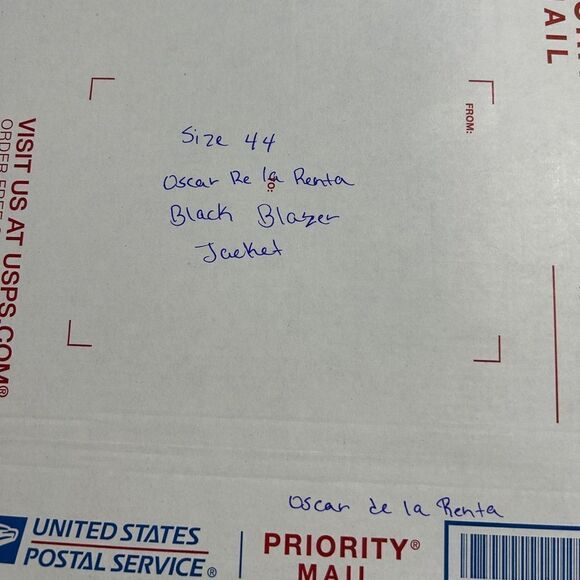 Size 44
Oscar De la Renta
Black Blazer
Jacket
TO:
FROM:
VISIT US AT USPS.COM®
Oscar de la Renta
UNITED STATES
POSTAL SERVICE®
PRIORITY®
MAIL
AIL